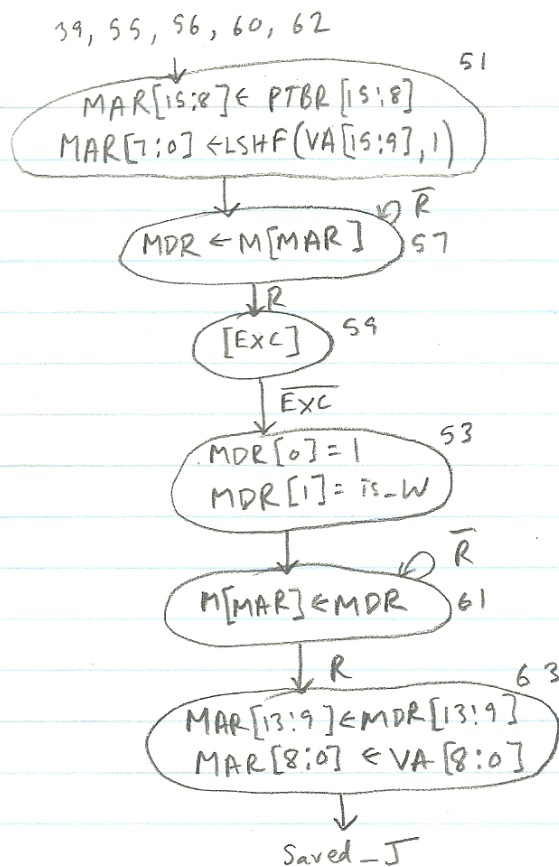 39, 55, 56, 60, 62
51
MAR[15:8] ← PTBR[15:8]
MAR[7:0] ← LSHF(VA[15:9], 1)
R̅
MDR ← M[MAR] 57
R
[EXC] 59
E̅X̅C̅
53
MDR[0] = 1
MDR[1] = is_W
R̅
M[MAR] ← MDR 61
R
63
MAR[13:9] ← MDR[13:9]
MAR[8:0] ← VA[8:0]
Saved_J